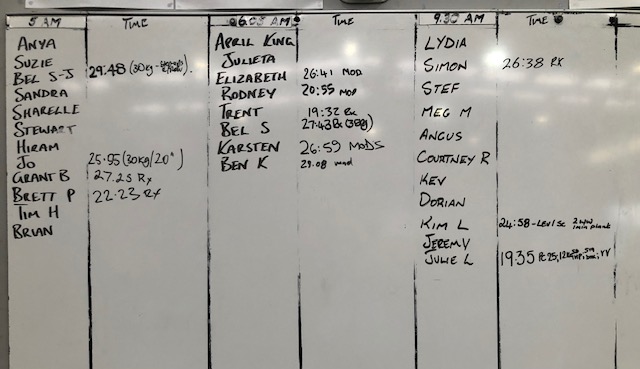 5 AM TIME 6.05 AM TIME 9.30 AM TIME
ANYA
SUZIE
BEL S-J 29:48 (30kg-
SANDRA
SHARELLE
STEWART
HIRAM
JO 25:55 (30kg/20")
GRANT B 27.25 Rx
BRETT P 22.23 Rx
TIM H
BRIAN
APRIL KING
JULIETA
ELIZABETH 26:41 MOD
RODNEY 20:55 MOD
TRENT 19:32 Rx
BEL S 27:43 Rx
KARSTEN 26:59 MODS
BEN K 29.08 mod
LYDIA
SIMON 26:38 RX
STEF
MEG M
ANGUS
COURTNEY R
KEV
DORIAN
KIM L 24:58-
1min plank
JEREMY
JULIE L 19:35